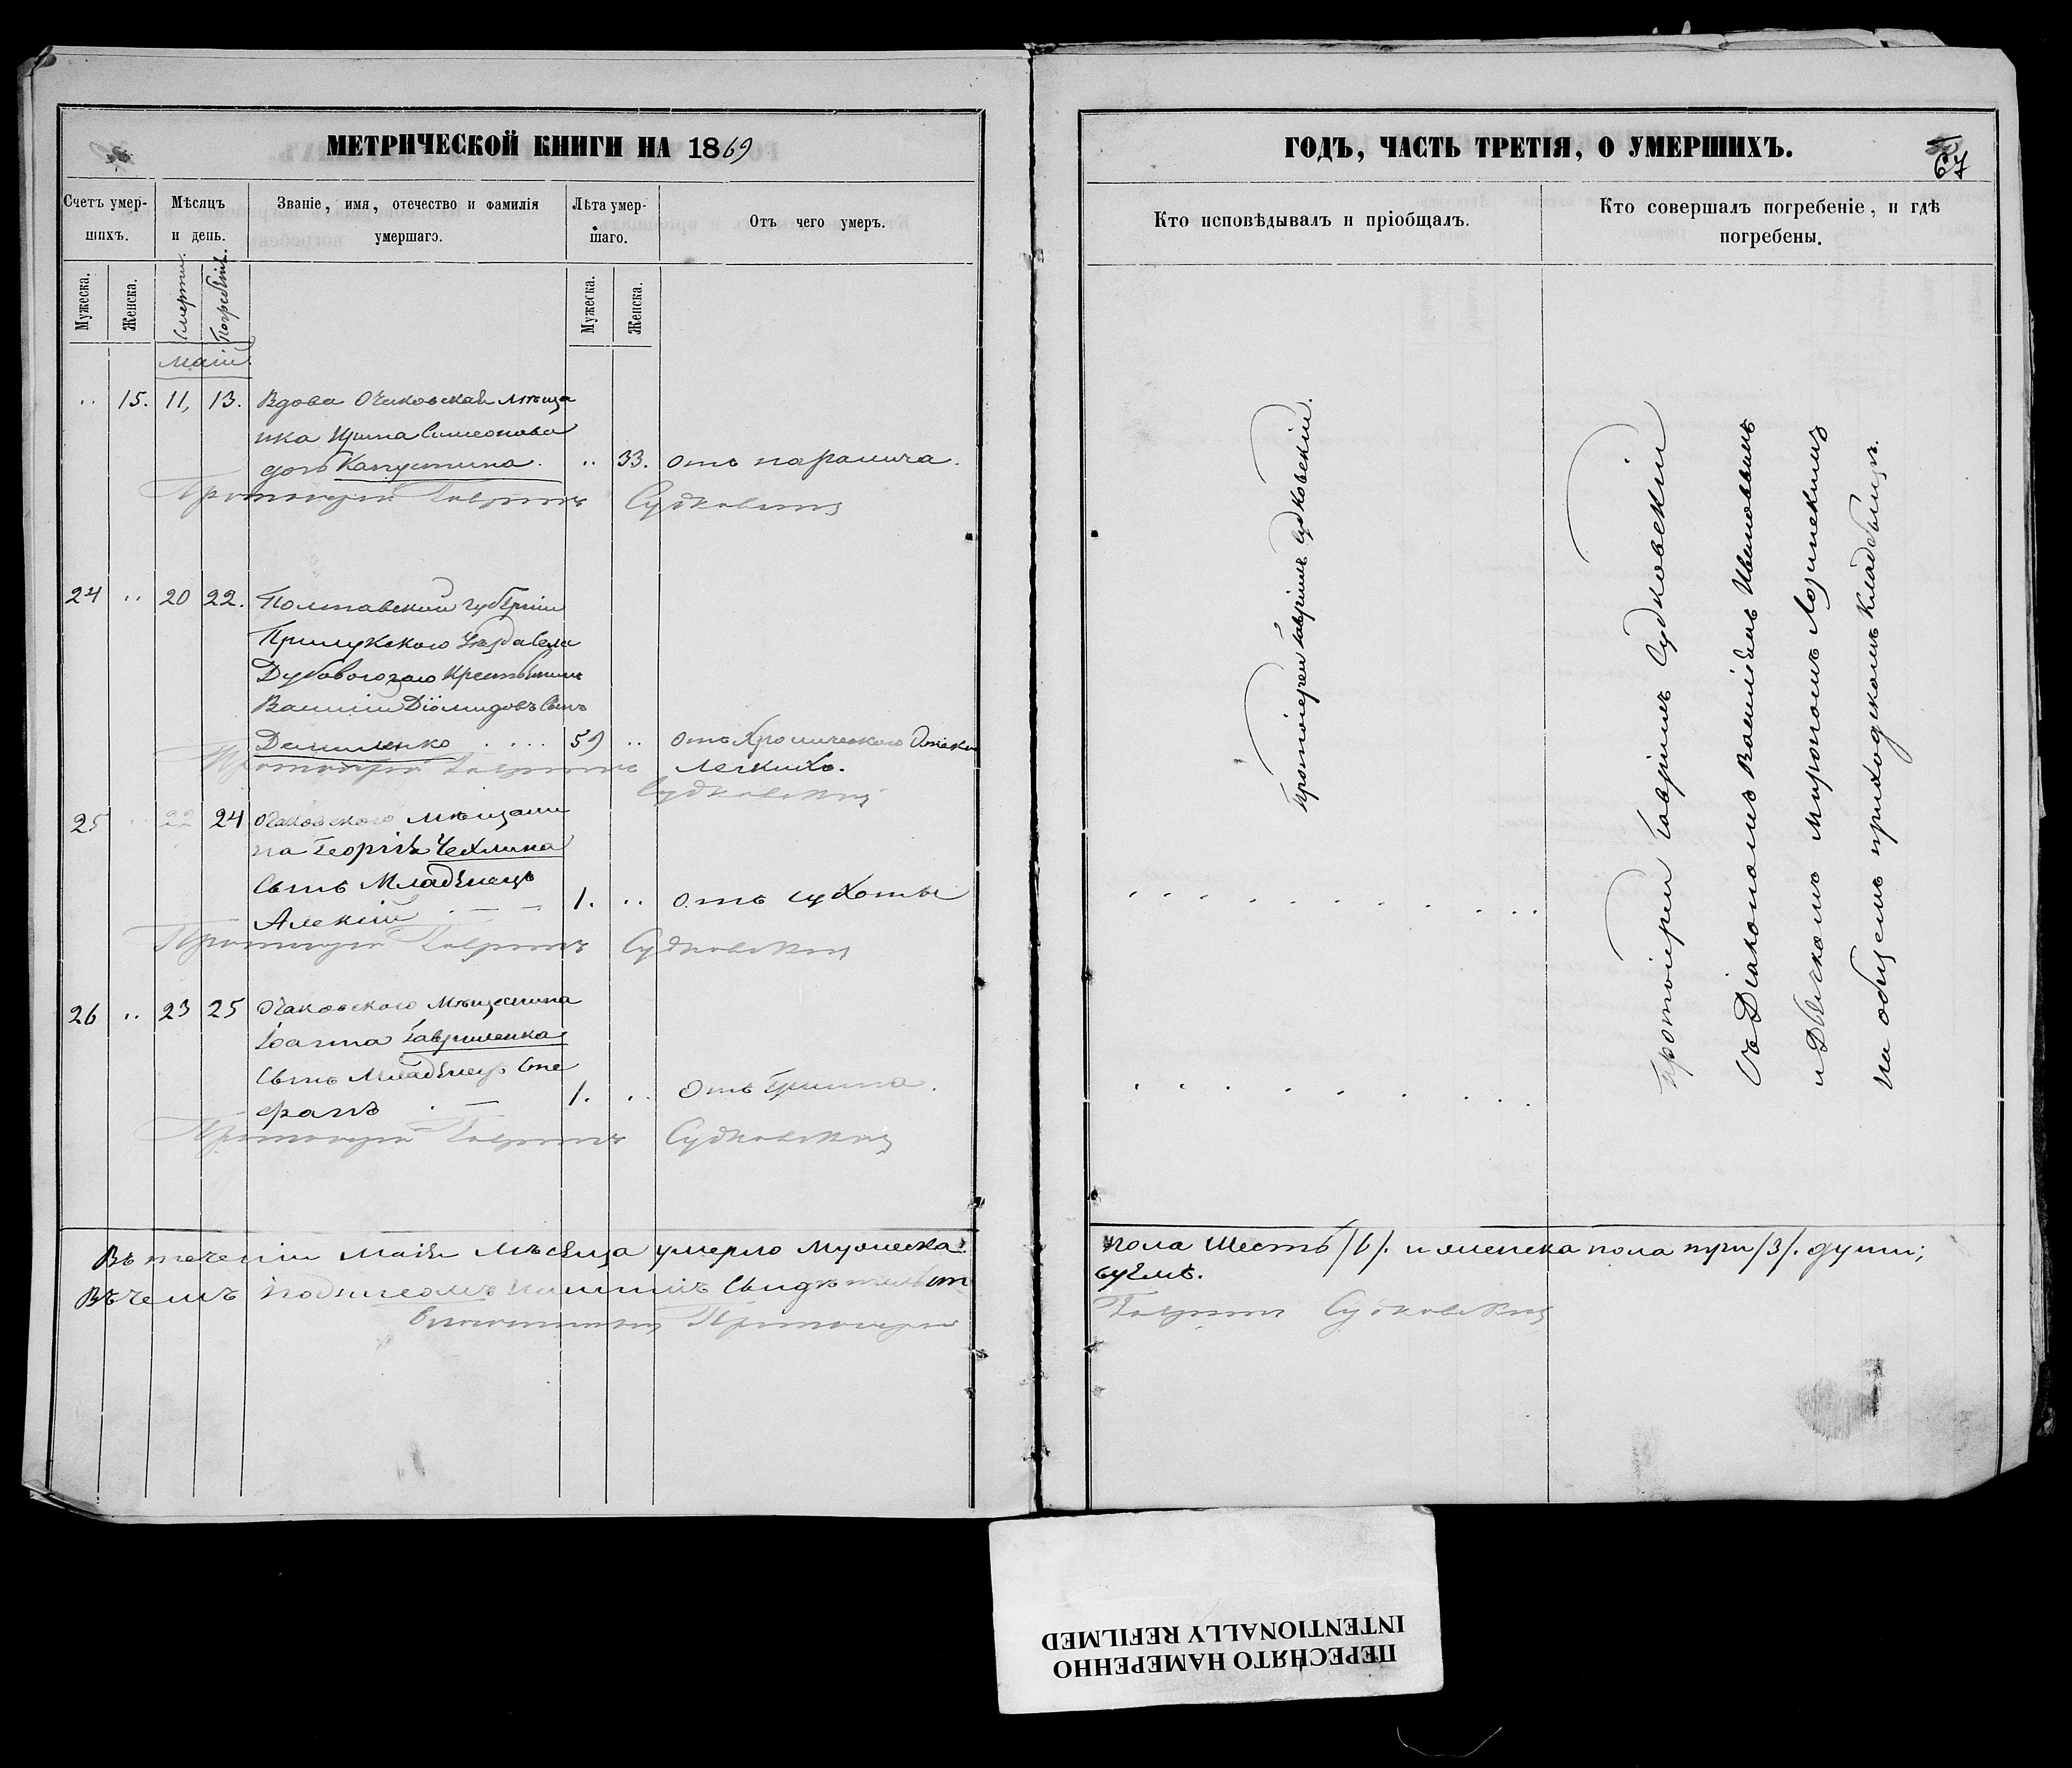 МЕТРИЧЕСКОЙ КНИГИ НА 1869
Счетъ умер-
шихъ.
Мѣсяцъ
и день.
Званіе, имя, отечество и фамилія
умершаго.
Лѣта умер-
шаго.
Отъ чего умеръ.
Мужеска.
Женска.
Смерти.
Погребенія.
Мужеска.
Женска.
Маій
.. 15. 11, 13. Вдова Очаковская мѣща
нка Ирина Симеонова
дочь Капустина. .. 33. отъ паралича.
Протоіерей Гавріилъ Судковскій
24 .. 20 22. Полтавской губерніи
Прилукского Уѣзда Села
Дубового Крестьянинъ
Василій Діомидовъ Сынъ
Даниленко .... 59 .. отъ Хронического
легкихъ.
Протоіерей Гавріилъ
Судковскій
25 .. 22 24 Очаковского Мѣщани
на Георгія Чехлина
Сынъ Младенецъ
Алексій 1. .. отъ сухоты
Протоіерей Гавріилъ Судковскій
26 .. 23 25 Очаковского Мѣщанина
Іоанна Гавриленка
Сынъ Младенецъ Сте
фанъ 1. .. Отъ Грипа.
Протоіерей Гавріилъ Судковскій
Въ теченіи Маія Мѣсяца умерло Мужеска
Въ чемъ подписомъ нашимъ Свидѣтельст
Протоіерей
ГОДЪ, ЧАСТЬ ТРЕТІЯ, О УМЕРШИХЪ.
67
Кто исповѣдывалъ и пріобщалъ.
Кто совершалъ погребеніе, и гдѣ
погребены.
Протоіерей Гавріилъ Судковскій.
Протоіерей Гавріилъ Судковскій
Съ Діакономъ Василіемъ Ивановымъ
и Дьячкомъ Мирономъ Лозинскимъ
на общемъ приходскомъ кладбищѣ.
пола шесть /6/. и женска пола три /3/. души;
вуемъ.
Гавріилъ Судковскій
ПЕРЕСНЯТО НАМЕРЕННО
INTENTIONALLY REFILMED